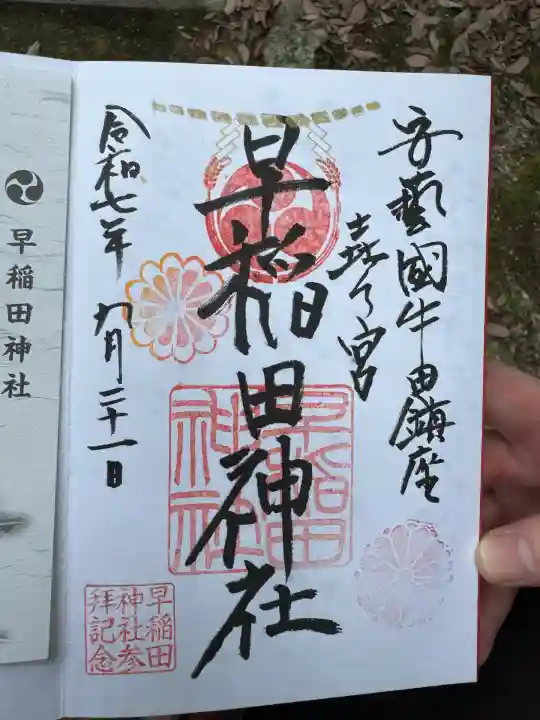 安藝國牛田鎮座
㐂乃宮
早稲田神社
早稲田
神社
令和七年
九月二十一日
早稲田
神社参
拝記念
早稲田神社